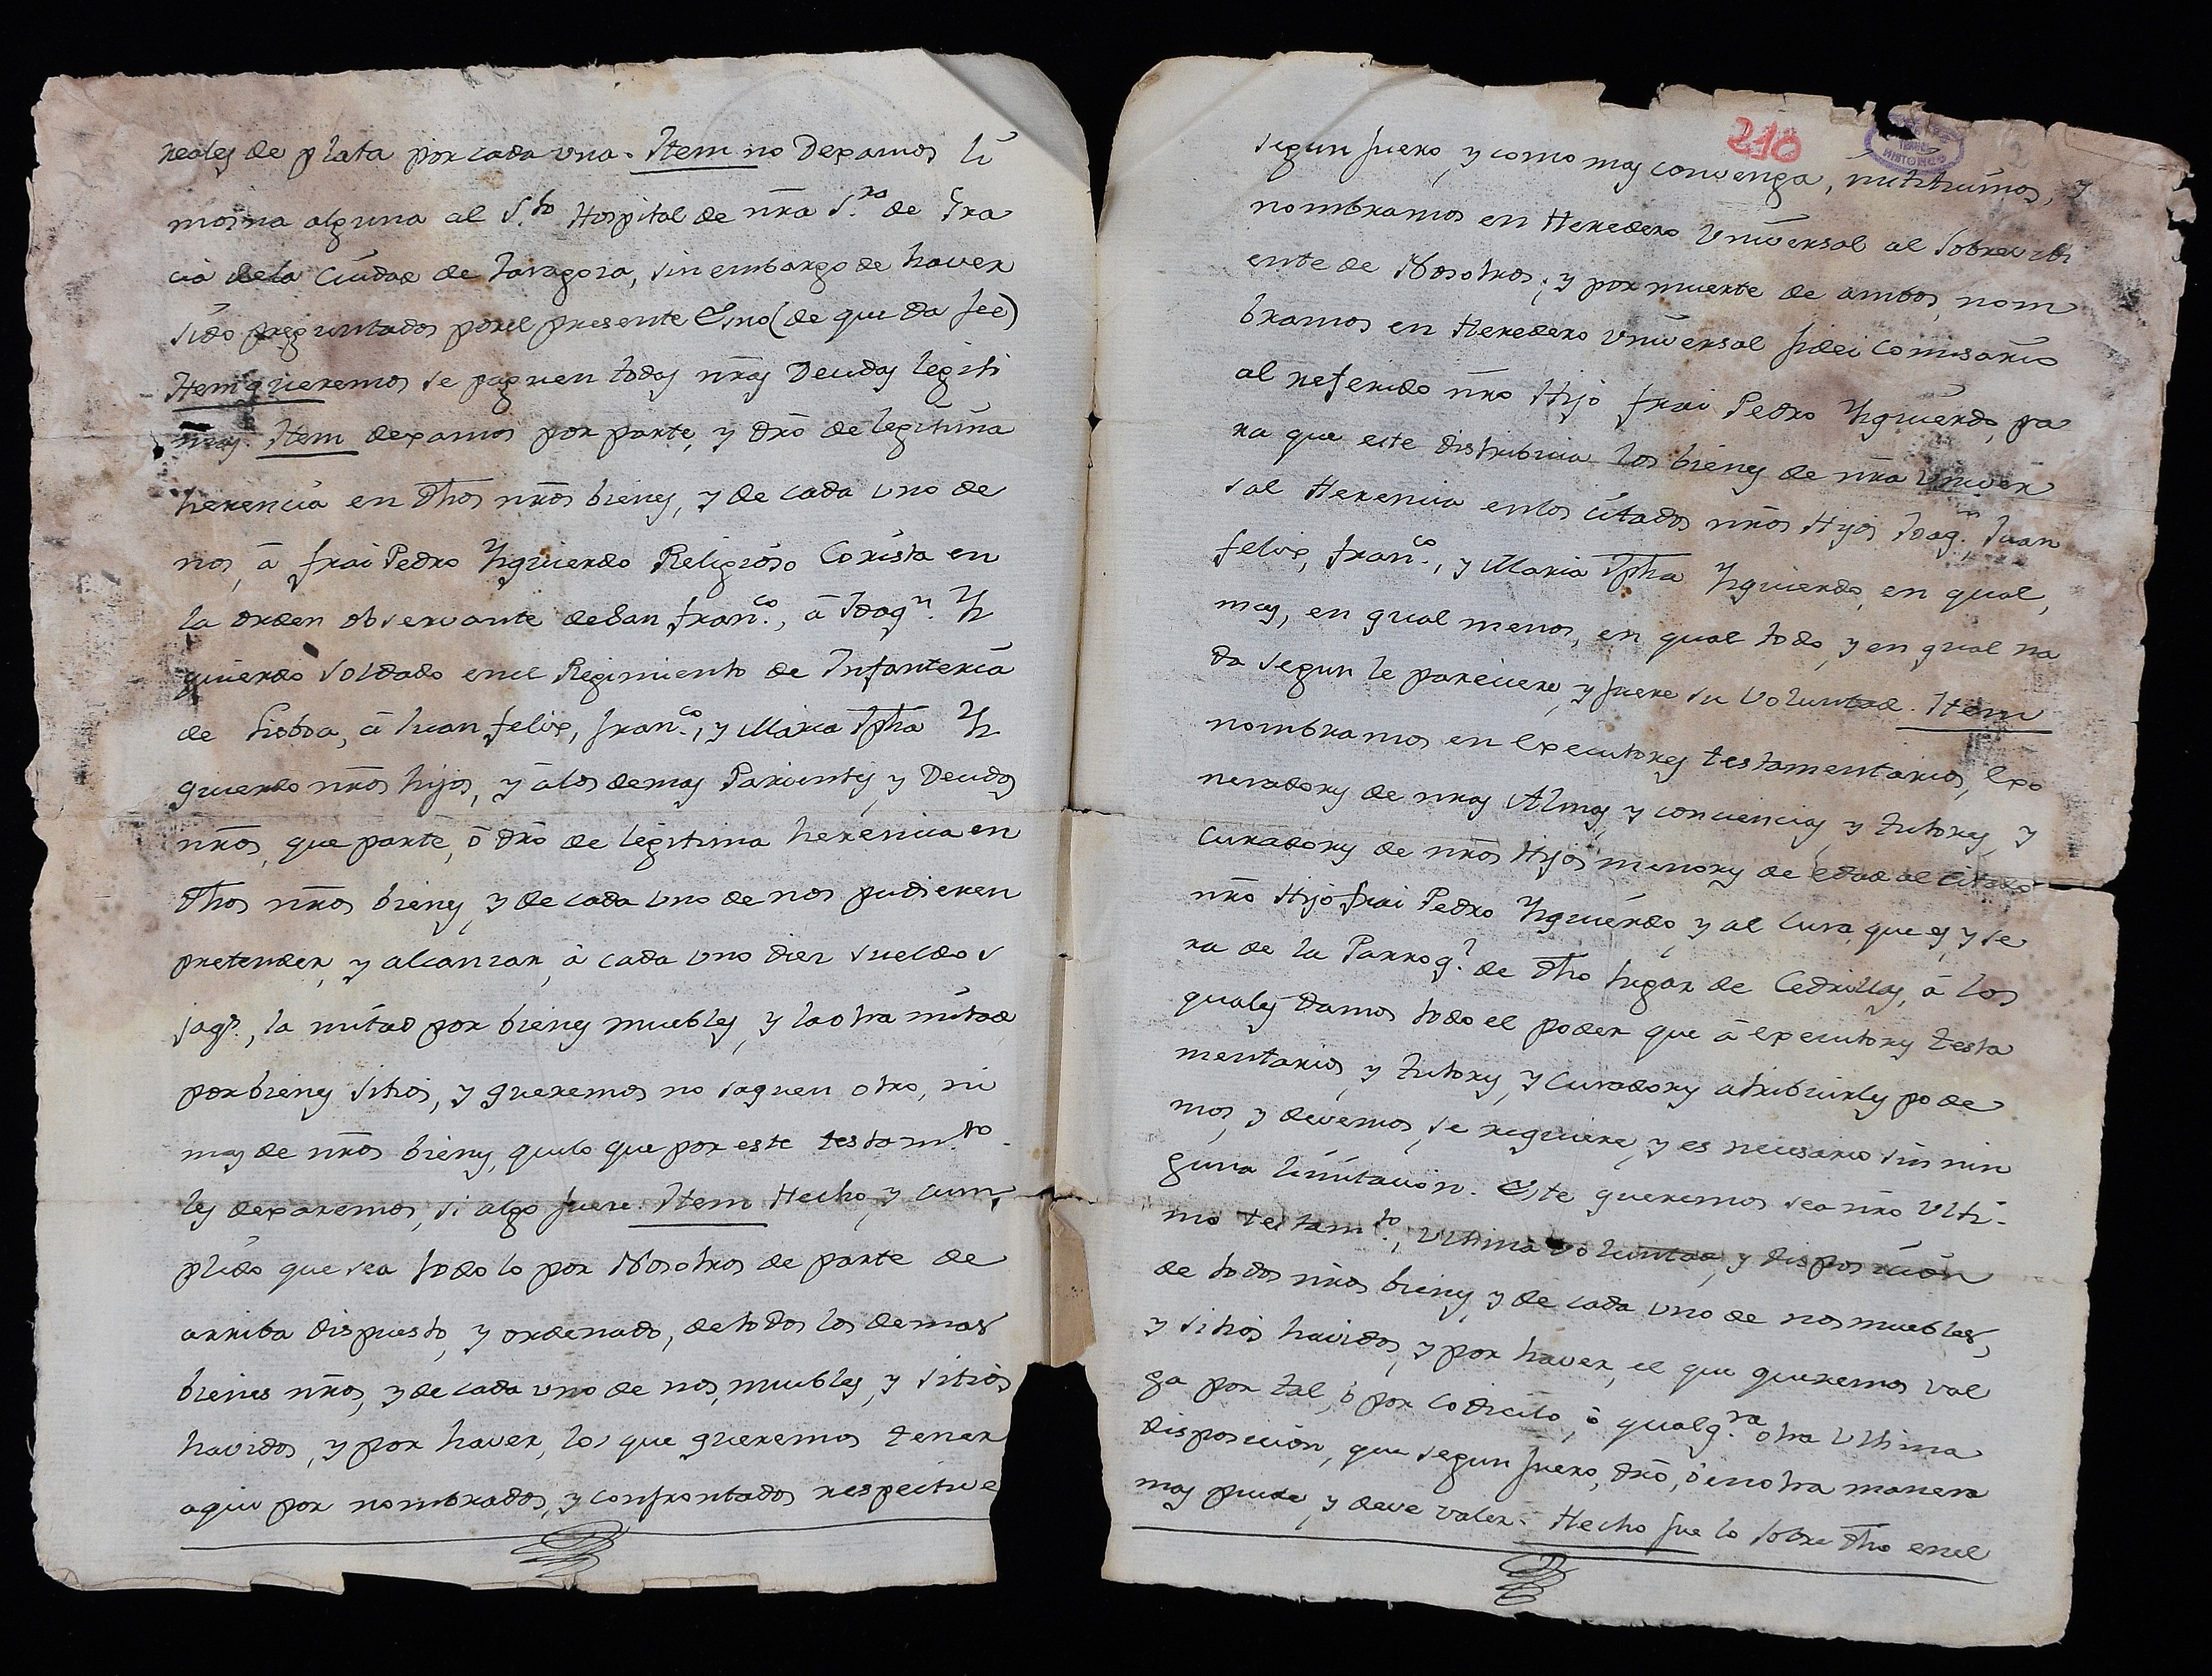 reales de plata por cada una. Item no Dexamos li
mosna alguna al S.to Hospital de nr̃a S.ra de Gra
cia dela Ciudad de Zaragoza, sin embargo de haver
sido preguntados porel presente Esno (de que da fee)
Item queremos se paguen todas nr̃as Deudas legiti
mas. Item dexamos por parte, y dr̃o de legitima
herencia en dh̃os nr̃os bienes, y de cada uno de
nos, â frai Pedro Yzquierdo Religioso Corista en
la orden observante de San fran.co, â Joaq.n Yz
quierdo Soldado enel Regimiento de Infanteria
de Lisboa, â Juan felix, fran.co, y Maria Jph̃a Yz
quierdo nr̃os hijos, y âlos demas Parientes, y Deudos
nr̃os, que parte, ô dr̃o de legitima herencia en
dh̃os nr̃os bienes, y de cada uno de nos pudieren
pretender, y alcanzar, â cada uno diez sueldos
jaq.s, la mitad por bienes muebles, y la otra mitad
por bienes sitios, y queremos no saquen otro, ni
mas de nr̃os bienes, quelo que por este testam.to
les dexaremos, si algo fuere. Item Hecho, y cum
plido que sea todo lo por Nosotros de parte de
arriba dispuesto, y ordenado, de todos los demas
bienes nr̃os, y de cada uno de nos, muebles, y sitios
havidos, y por haver, los que queremos tener
aqui por nombrados, y confrontados respective
218
segun fuero, y como mas convenga, instituimos, y
nombramos en Heredero Universal al sobrevivi
ente de Nosotros; y por muerte de ambos, nom
bramos en Heredero Universal fidei comisario
al referido nr̃o Hijo frai Pedro Yzquierdo, pa
ra que este distribuia los bienes de nr̃a Univer
sal Herencia enlos citados nr̃os Hijos Joaq.n, Juan
felix, fran.co, y Maria Jph̃a Yzquierdo, en qual,
mas, en qual menos, en qual todo, y en qual na
da segun le pareciere, y fuere su Voluntad. Item
nombramos en Executores testamentarios, Exo
neradores de nr̃as Almas, y conciencias, y tutores, y
Curadores de nr̃os Hijos menores de edad al citado
nr̃o Hijo frai Pedro Yzquierdo, y al Cura, que es, y se
ra de la Parroq.l de dh̃o lugar de Cedrillas, â los
quales Damos todo el poder que â executores testa
mentarios, y tutores, y Curadores atribuirles pode
mos, y devemos, se requiere, y es necesario sin nin
guna limitacion. Este queremos sea nr̃o Ulti-
mo testam.to, Ultima voluntad, y disposicion
de todos nr̃os bienes, y de cada uno de nos muebles,
y sitios havidos, y por haver, el que queremos val
ga por tal, ô por codicilo, ô qualq.ra otra Ultima
disposicion, que segun fuero, dr̃o, ô en otra manera
mas puede, y deve valer. Hecho fue lo sobre dh̃o enel